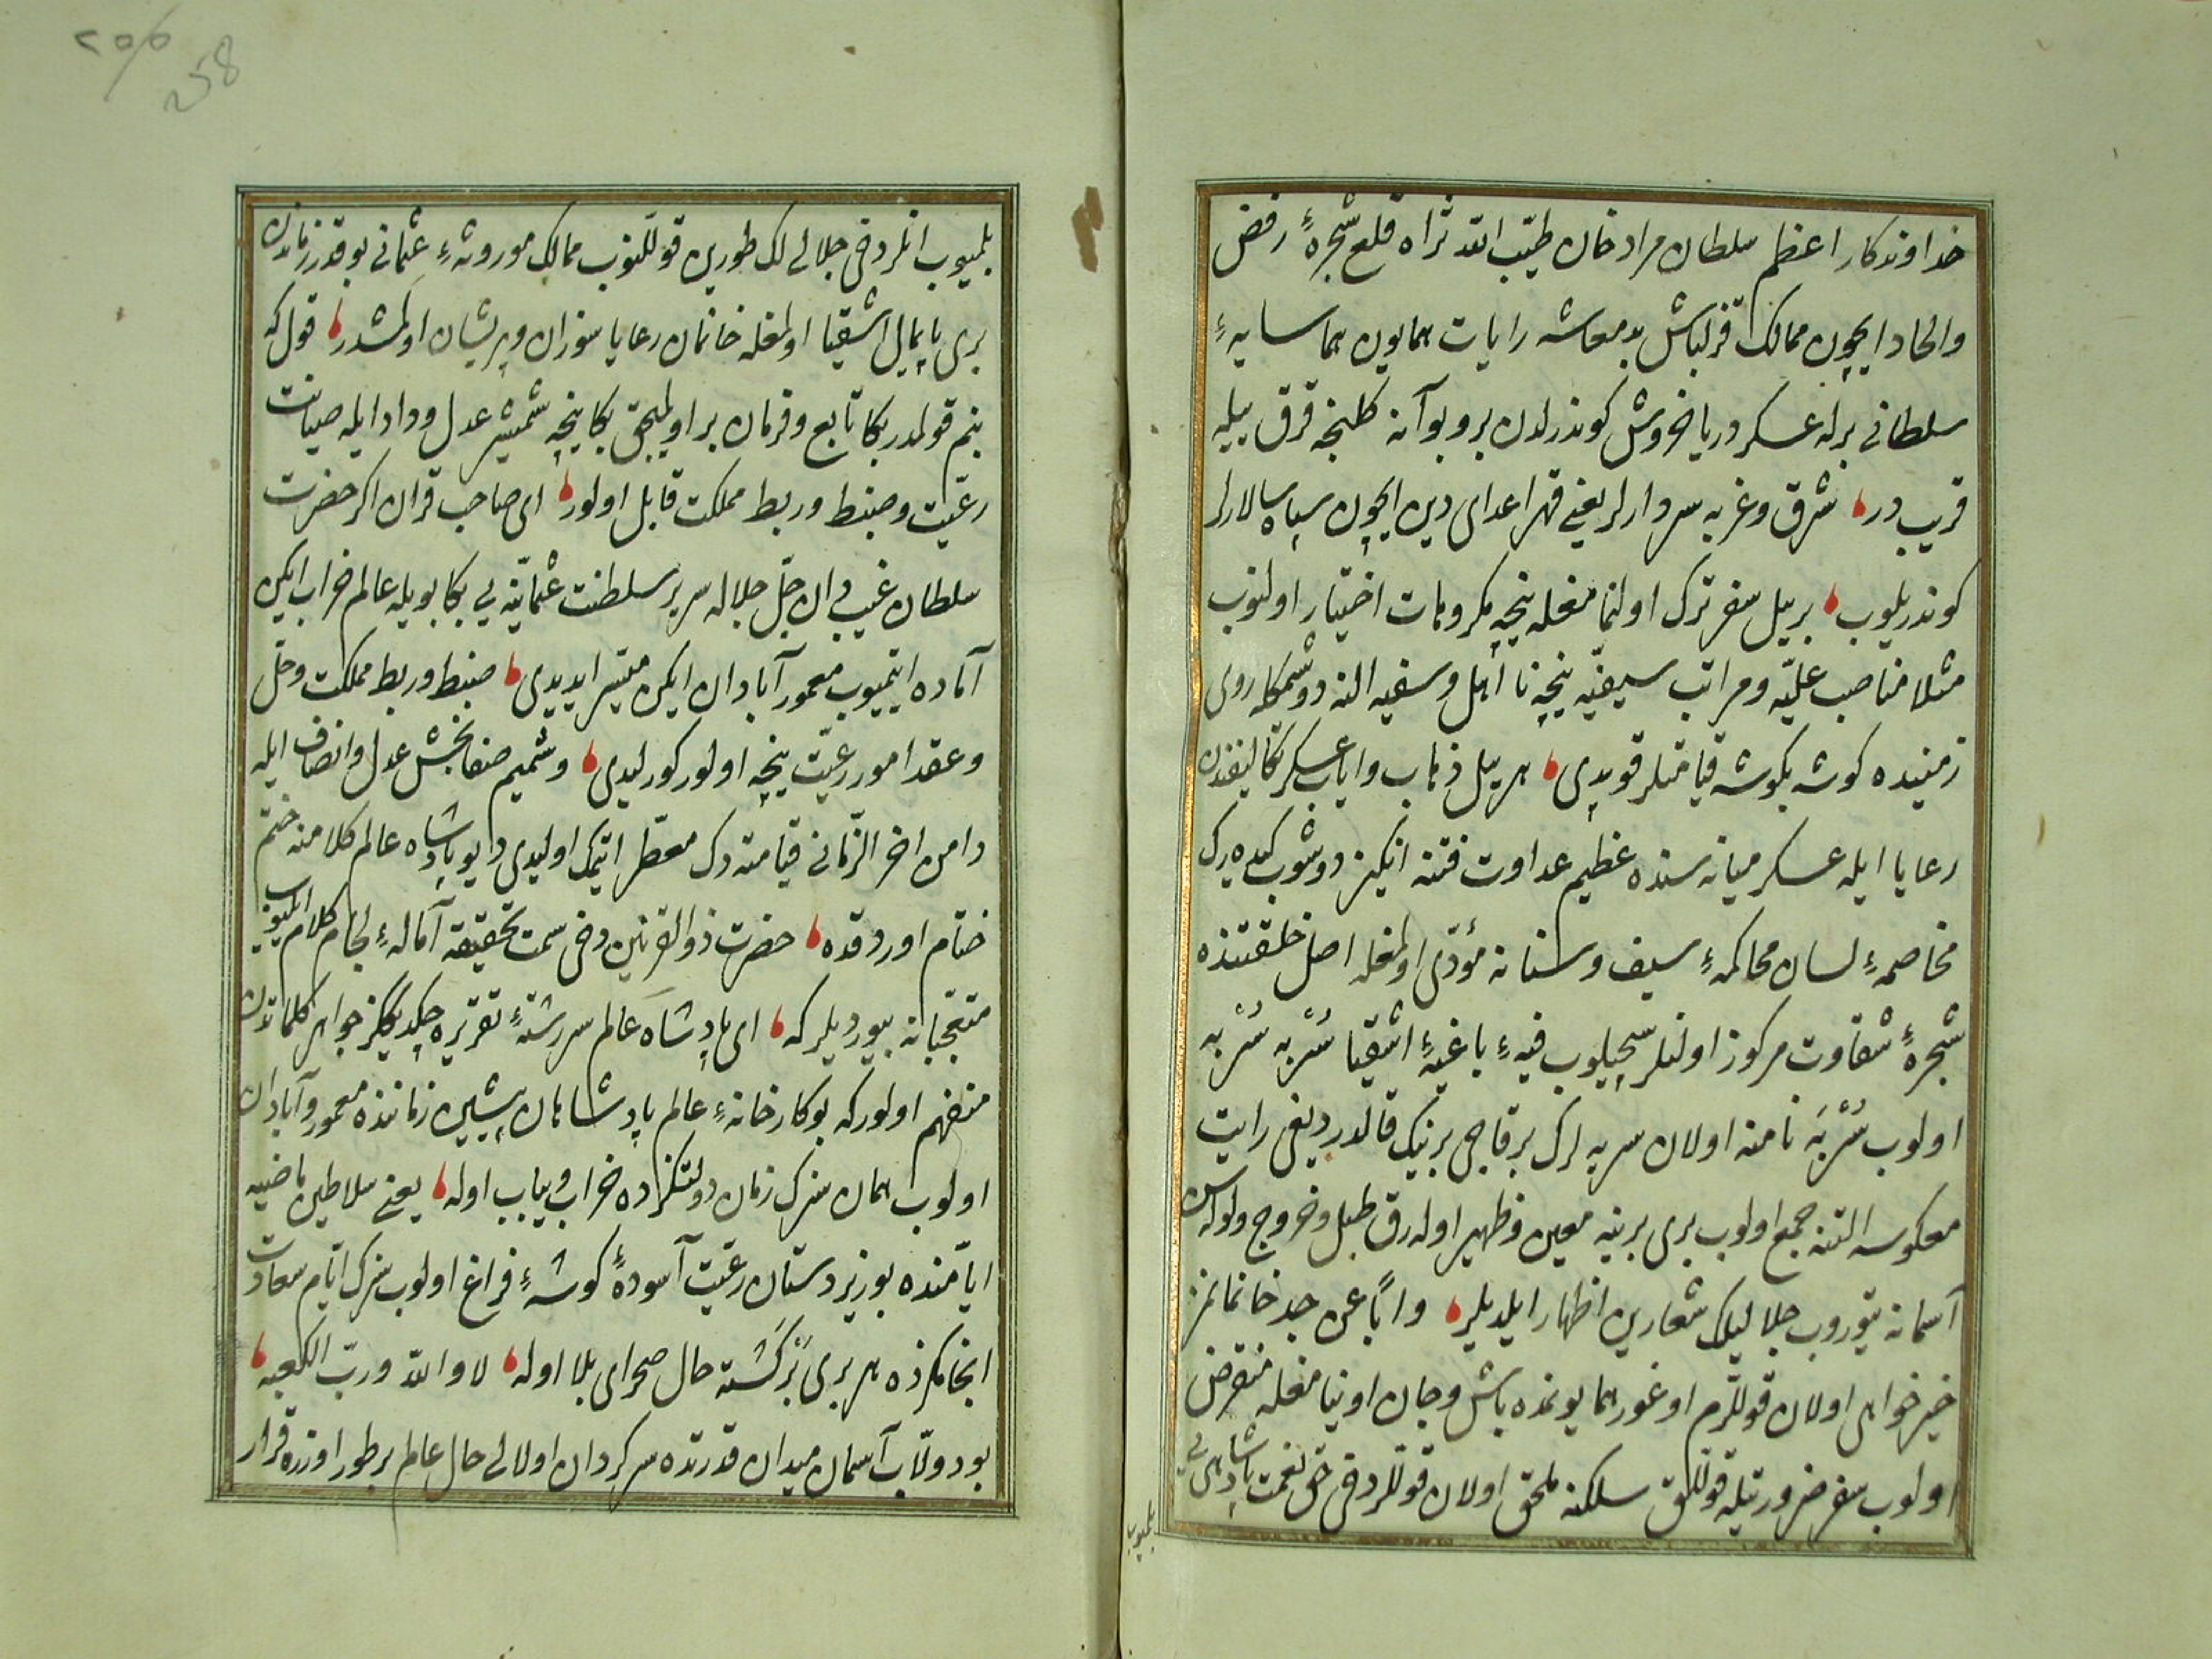 خداوندكار اعظم سلطان مراد خان طيّب الله ثراه قلع شجرهٔ رفض
والحاد ايچون ممالك قزلباش بد معاشه رايات همايون هما سايهٔ
سلطانى برله عسكر دريا خروش كوندرلدن برو بو آنه كلنجه قرق ييله
قريب در شرق وغربه سردارلر يعنى قهر اعداى دين ايچون سپاه سالارلر
كوندريلوب بر ييل سفر ترك اولنمامغله نيچه مكروهات اختيار اولنوب
مثلا مناصب عليّه ومراتب سيفيّه نيچه نا اهل وسفيه النه دوشمكله روى
زمينده كوشه بكوشه قيامتلر قوپدى هر ييل ذهاب واياب عسكر تكاليفندن
رعايا ايله عسكر ميانه سنده عظيم عداوت فتنه انكيز دوشوب كيده رك
مخاصمهٔ لسان محاكمهٔ سيف وسنانه مؤدّى اولمغله اصل خلقتنده
شجرهٔ شقاوت مركوز اولنلر سچيلوب فيهٔ باغيهٔ اشقيا سُرْبه سُرْبه
اولوب سُرْبَه نامنه اولان سربه لرك بر قاچى بر بيك قالدردیغى رايت
معكوسه التنه جمع اولوب برى برينه معين وظهير اوله رق طبل وخروج ولوله سن
آسمانه يتوروب جلاليلك شعارين اظهار ايلديلر واباً عن جد خانمانمز
خير خواهى اولان قوللرم اوغور همايونمده باش وجان اوينامغله منقرض
اولوب سفر ضرورتيله قوللق سلكنه ملحق اولان قوللر دخى حق نعمت پادشاهى يى
بلميوب
بلميوب انلر دخى جلاليلك طورين قوللنوب ممالك موروثهٔ عثمانى بو قدر زماندن
برى پايمال اشقيا اولمغله خانمان رعايا سوزان وپريشان اولمشدر قول كه
بنم قولمدر بكا تابع وفرمان بر اولميجق بكا نيجه شمشير عدل وداد ايله صيانت
رعيّت وضبط وربط مملكت قابل اولور اى صاحب قران اكر حضرت
سلطان غيب دان جلّ جلاله سرير سلطنت عثمانيّه يى بكا بويله عالم خراب ايكن
آماده ايتميوب معمور آبادان ايكن ميسّر ايديدى ضبط وربط مملكت وحلّ
وعقد امور رعيّت نيچه اولور كورليدى وشميم صفابخش عدل وانصاف ايله
دامن اخر الزّمانى قيامته دك معطّر ايتمك اوليدى دايو پادشاه عالم كلامنه ختم
ختام اوردقده حضرت ذو القرنين دخى سمت تحقيقه آمالهٔ لجام كلام ايليوب
متعجّبانه بيورديلر كه اى پادشاه عالم سر رشتهٔ تقريره چكديككز جواهر كلماتدن
منفهم اولور كه بو كارخانهٔ عالم پادشاهان پيشين زماننده معمور وآبادان
اولوب همان سزك زمان دولتكزده خراب ويباب اوله يعنى سلاطين ماضيه
ايّامنده بو زير دستان رعيّت آسودهٔ كوشهٔ فراغ اولوب سزك ايّام سعادت
انجامكزده هر برى بَرْكَشته حال صحراى بلا اوله لا والله وربّ الكعبه
بو دولاب آسمان ميدان قدرتده سركردان اولالى حال عالم بر طور اوزره قرار
258